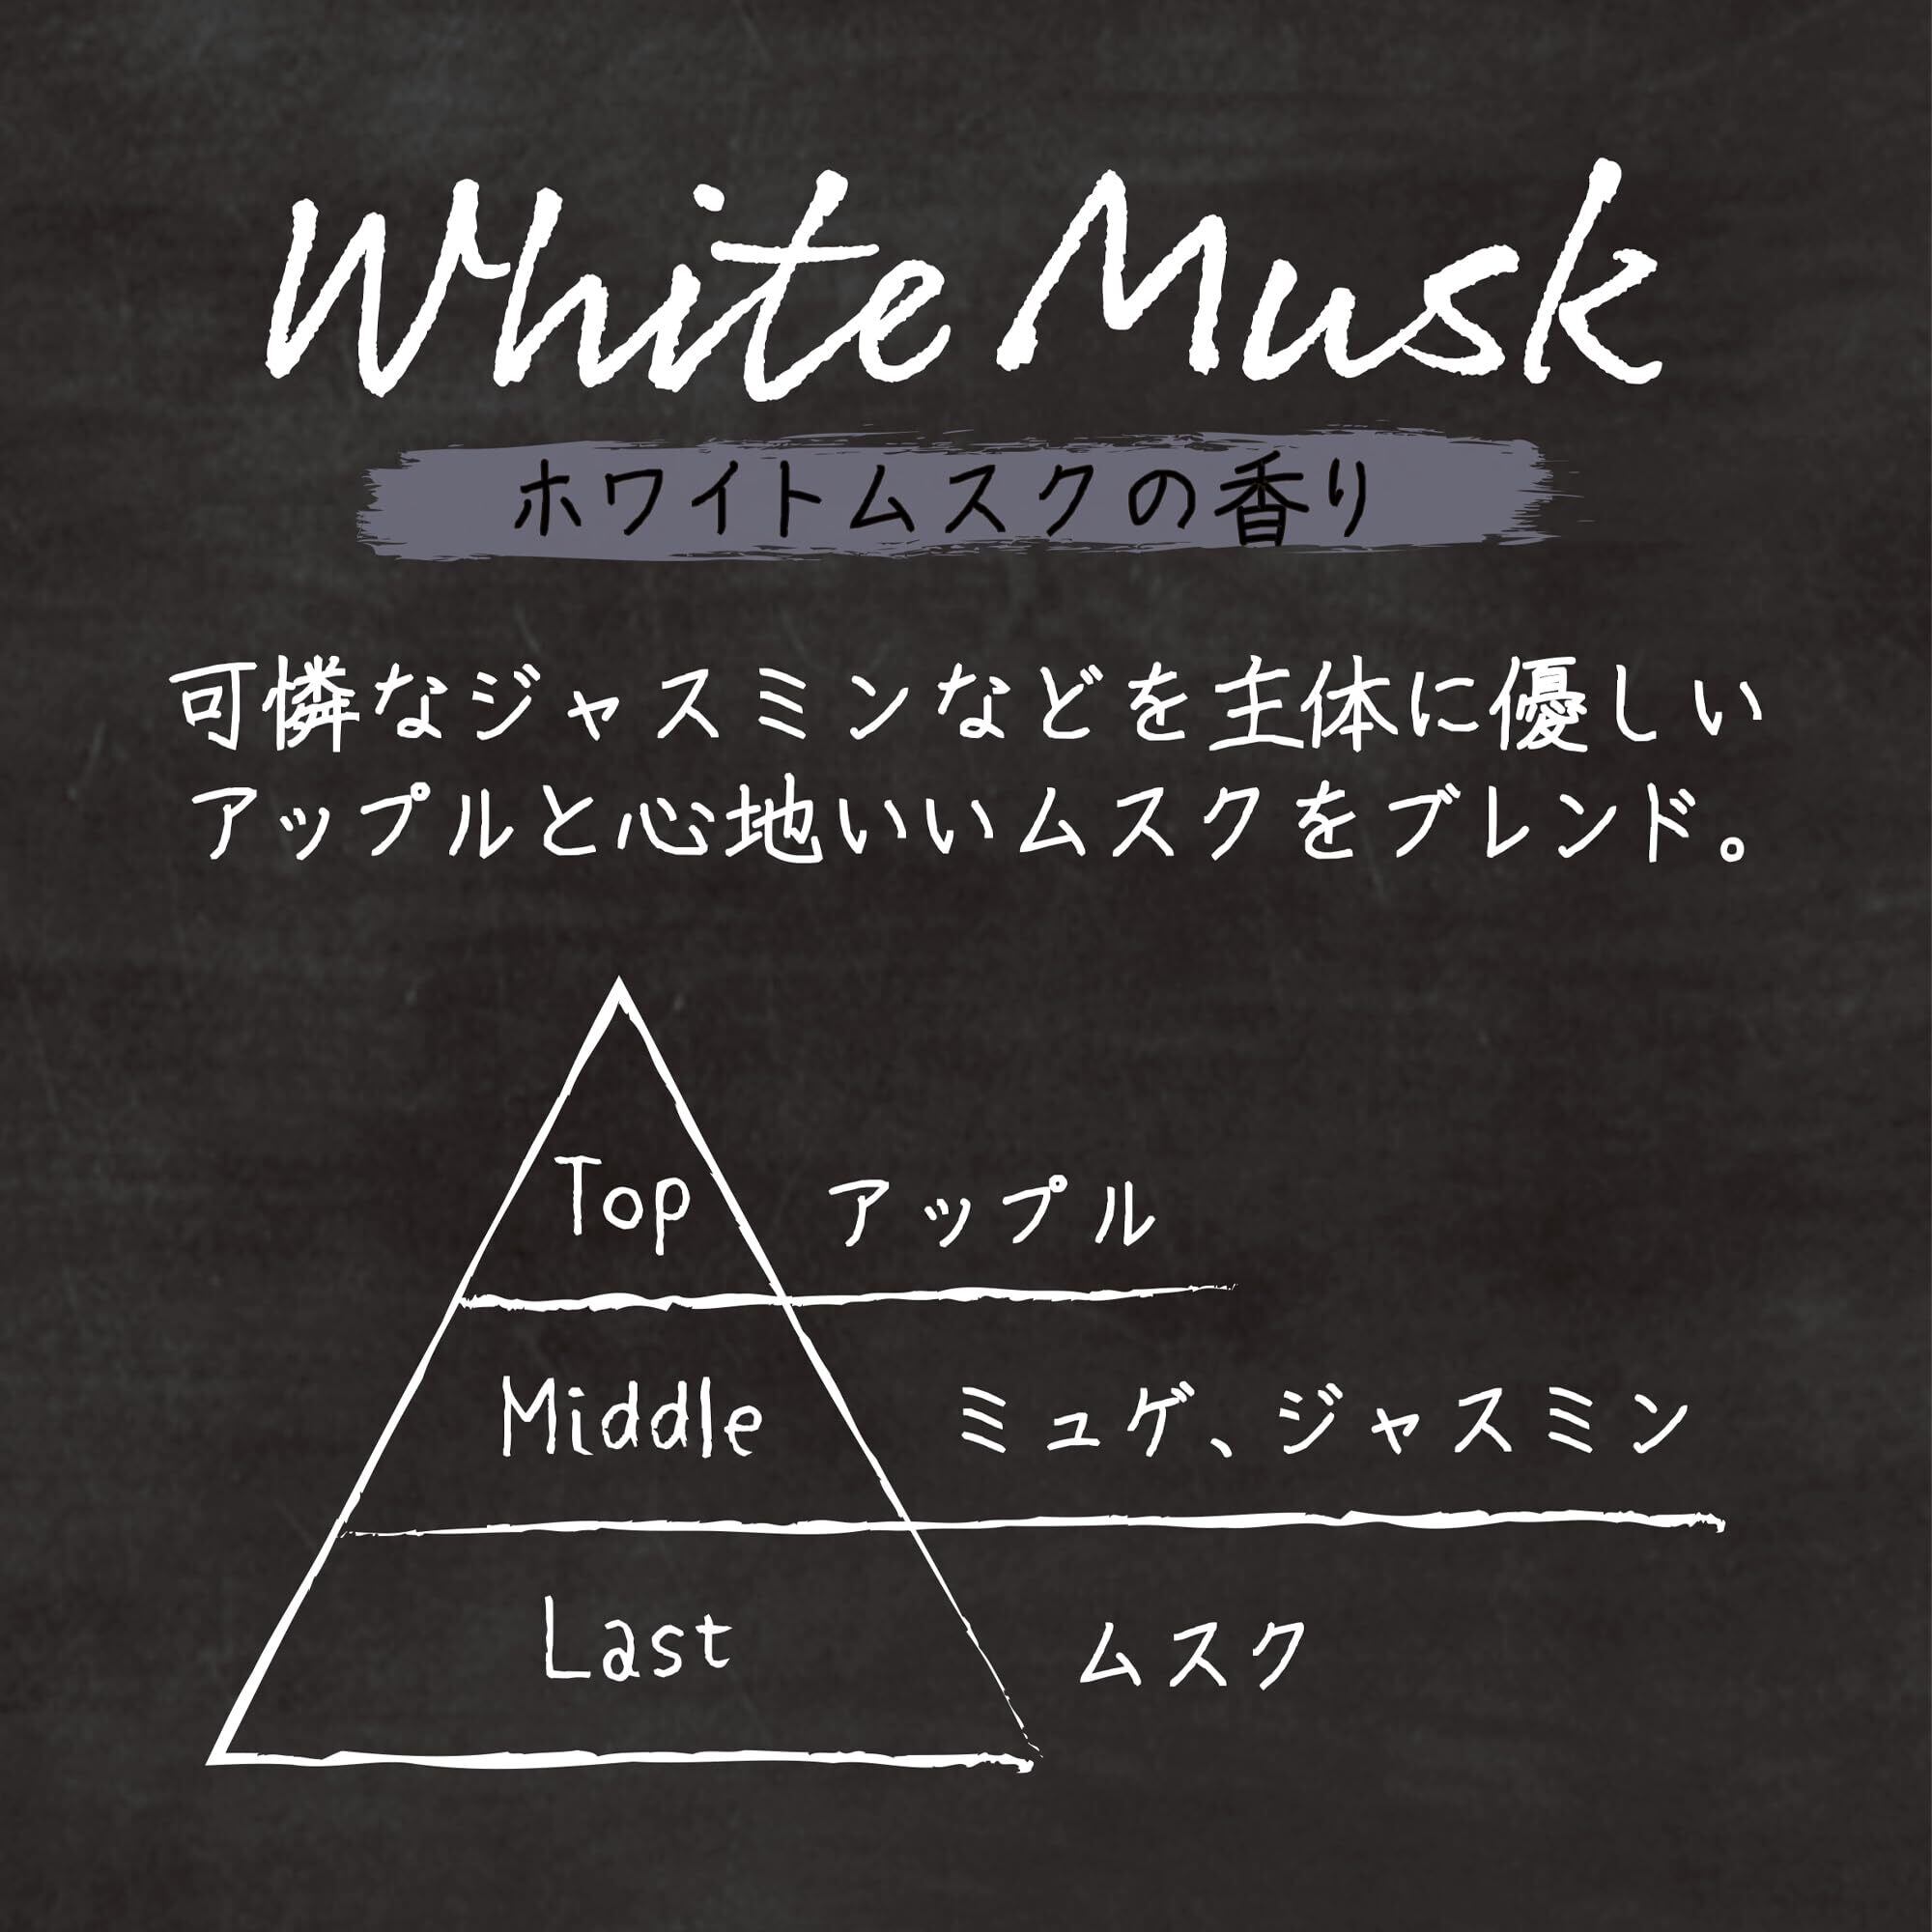 White Musk
ホワイトムスクの香り
可憐なジャスミンなどを主体に優しい
アップルと心地いいムスクをブレンド。
Top アップル
Middle ミュゲ、ジャスミン
Last ムスク